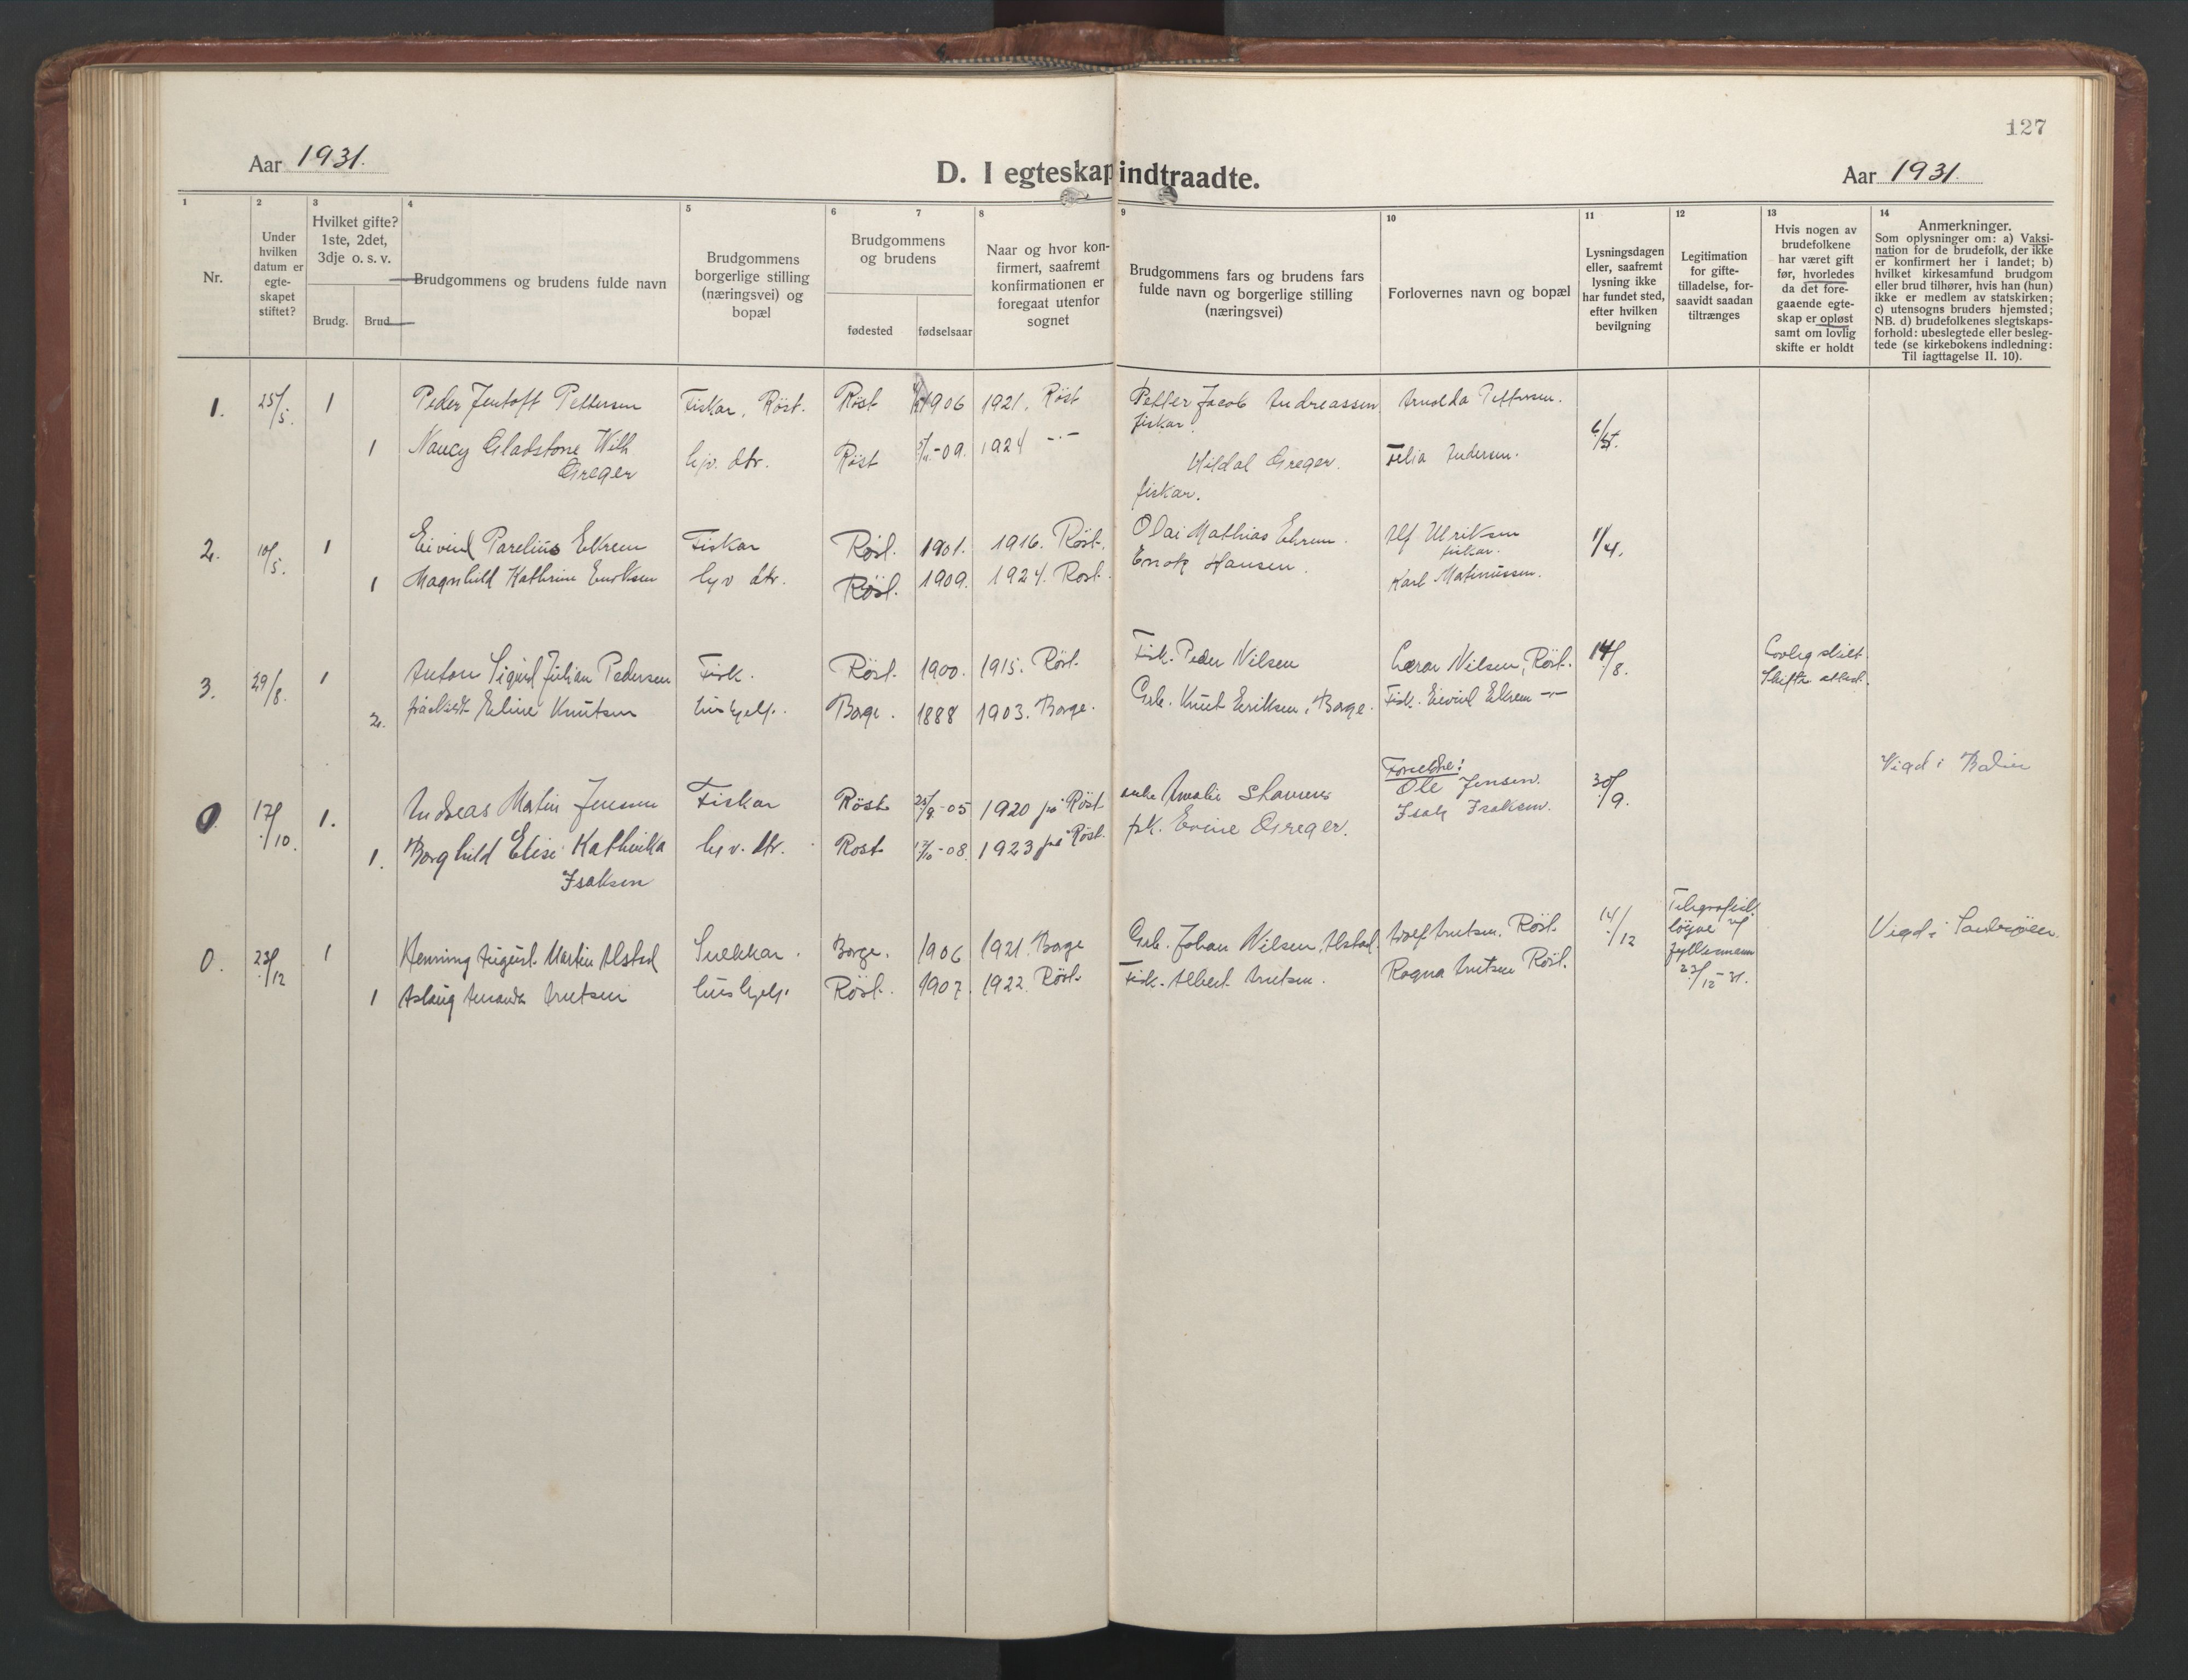 127
Aar 1931.
D. I egteskap indtraadte.
Aar 1931.
1
2
3
4
5
6
7
8
9
10
11
12
13
14
Nr.
Under hvilken datum er egte-skapet stiftet?
Hvilket gifte? 1ste, 2det, 3dje o. s. v.
Brudg.
Brud
Brudgommens og brudens fulde navn
Brudgommens borgerlige stilling (næringsvei) og bopæl
Brudgommens og brudens
fødested
fødselsaar
Naar og hvor kon-firmert, saafremt konfirmationen er foregaat utenfor sognet
Brudgommens fars og brudens fars fulde navn og borgerlige stilling (næringsvei)
Forlovernes navn og bopæl
Lysningsdagen eller, saafremt lysning ikke har fundet sted, efter hvilken bevilgning
Legitimation for gifte-tilladelse, for-saavidt saadan tiltrænges
Hvis nogen av brudefolkene har været gift før, hvorledes da det fore-gaaende egte-skap er opløst samt om lovlig skifte er holdt
Anmerkninger.
Som oplysninger om: a) Vaksi-nation for de brudefolk, der ikke er konfirmert her i landet; b) hvilket kirkesamfund brudgom eller brud tilhører, hvis han (hun) ikke er medlem av statskirken; c) utensogns bruders hjemsted; NB. d) brudefolkenes slegtskaps-forhold: ubeslegtede eller besleg-tede (se kirkebokens indledning: Til iagttagelse II. 10).
1. 25/5. 1 Peder Jentoft Pettersen Fiskar, Røst. Røst 1906 1921. Røst Petter Jacob Andreassen Arnolda Pettersen.
fiskar.
1 Nancy Gladstone Wilh Greger hjv. dtr. Røst -09. 1924 -"- Hildal Greger. Andersen.
fiskar.
2. 10/5. 1 Eivind Parelius Ekrem Fiskar Røst. 1901. 1916. Røst. Olai Mathias Ekrem. Alf Ulriksen 11/4.
fiskar.
1 Magnhild Kathrine Enoksen hjv dtr. Røst. 1909. 1924. Røst. Enok Hansen. Karl Matinussen.
3. 29/8. 1 Anton Sigurd Julian Pedersen Fisk. Røst. 1900. 1915. Røst. Fisk. Peder Nilsen Nilsen, Røst. 14/8. Lovlig skilt.
Skifte attest.
2. fraskilt Eline Knutsen hushjelp. Borge. 1888 1903. Borge. Grb. Knut Eriksen, Borge. Fisk. Eivind Ekrem -"-
Vigd i Bodin
Foreldre:
0. 17/10. 1. Andreas Martin Jensen Fiskar Røst 25/9-05 1920 på Røst enke Amalie Ole Jensen. 30/9.
1. Borghild Elise Kathinka Isaksen hjv. dtr. Røst -08. 1923 på Røst. Evine Greger. Isak Isaksen.
0. 23/12 1 Henning August Martin Alstad Snekkar. Borge. 1906 1921. Borge Grb. Johan Nilsen Alstad Adolf Arntsen. Røst. 14/12 Telegrafisk løyve af fylkesmann 23/12-31. Vigd i
1 Aslaug Amanda Arntsen hushjelp. Røst. 1907. 1922. Røst. Fisk. Albert Arntsen. Ragna Arntsen Røst.